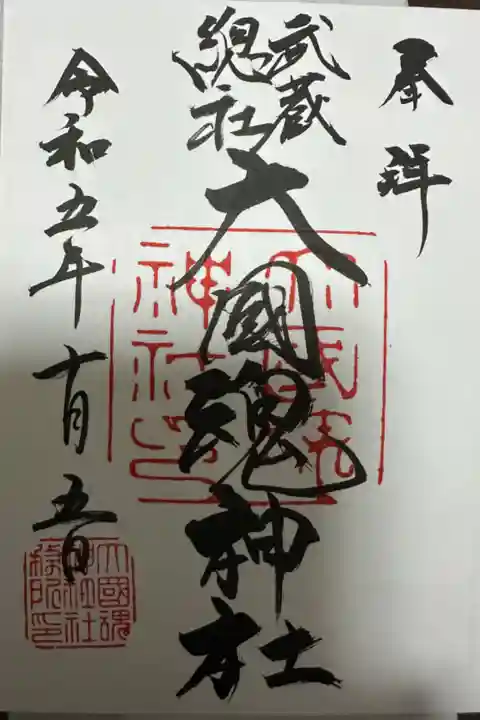 奉拝
武蔵
總社
大國魂神社
大國魂
神社印
令和五年十月五日
大國魂
神社